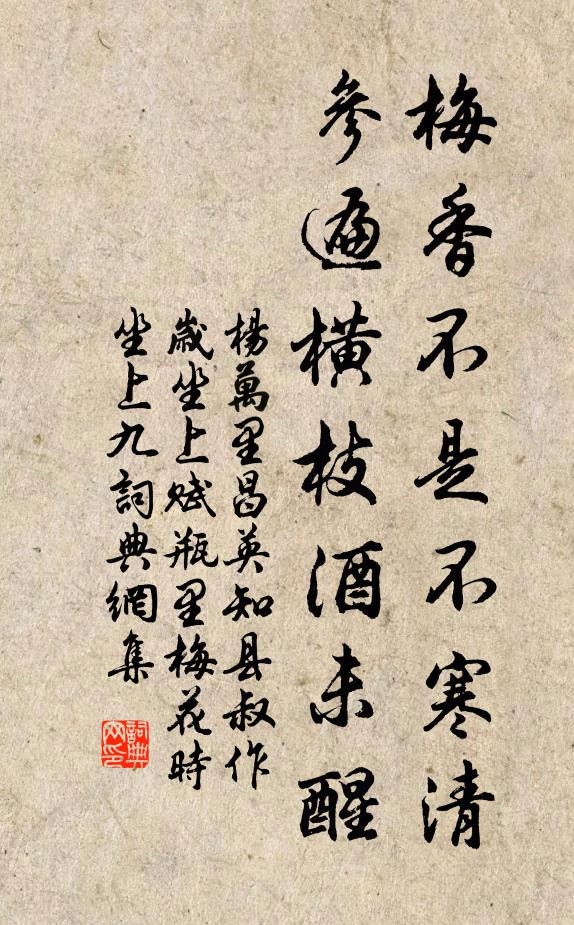 梅香不是不寒清
參遍橫枝酒未醒
楊萬里昌英知县叔作
歲坐上賦瓶里梅花時
坐上九詞典網集
詞典网印